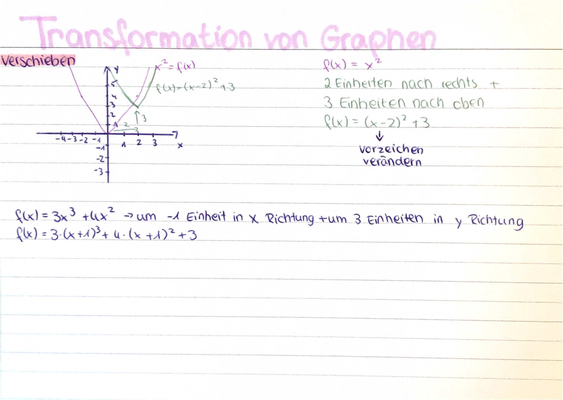 Transformation von Graphen
Verschieben
x² = f(x)
f(x)=(x-2)²+3
y
5
4
3
2
1
2
3
-4 -3 -2 -1
1 2 3
x
-1
-2
-3
f(x) = x²
2 Einheiten nach rechts +
3 Einheiten nach oben
f(x) = (x-2)² +3
↓
vorzeichen
verändern
f(x) = 3x³ + 4x² → um -1 Einheit in x Richtung + um 3 Einheiten in y Richtung
f(x) = 3·(x+1)³ + 4·(x+1)² + 3